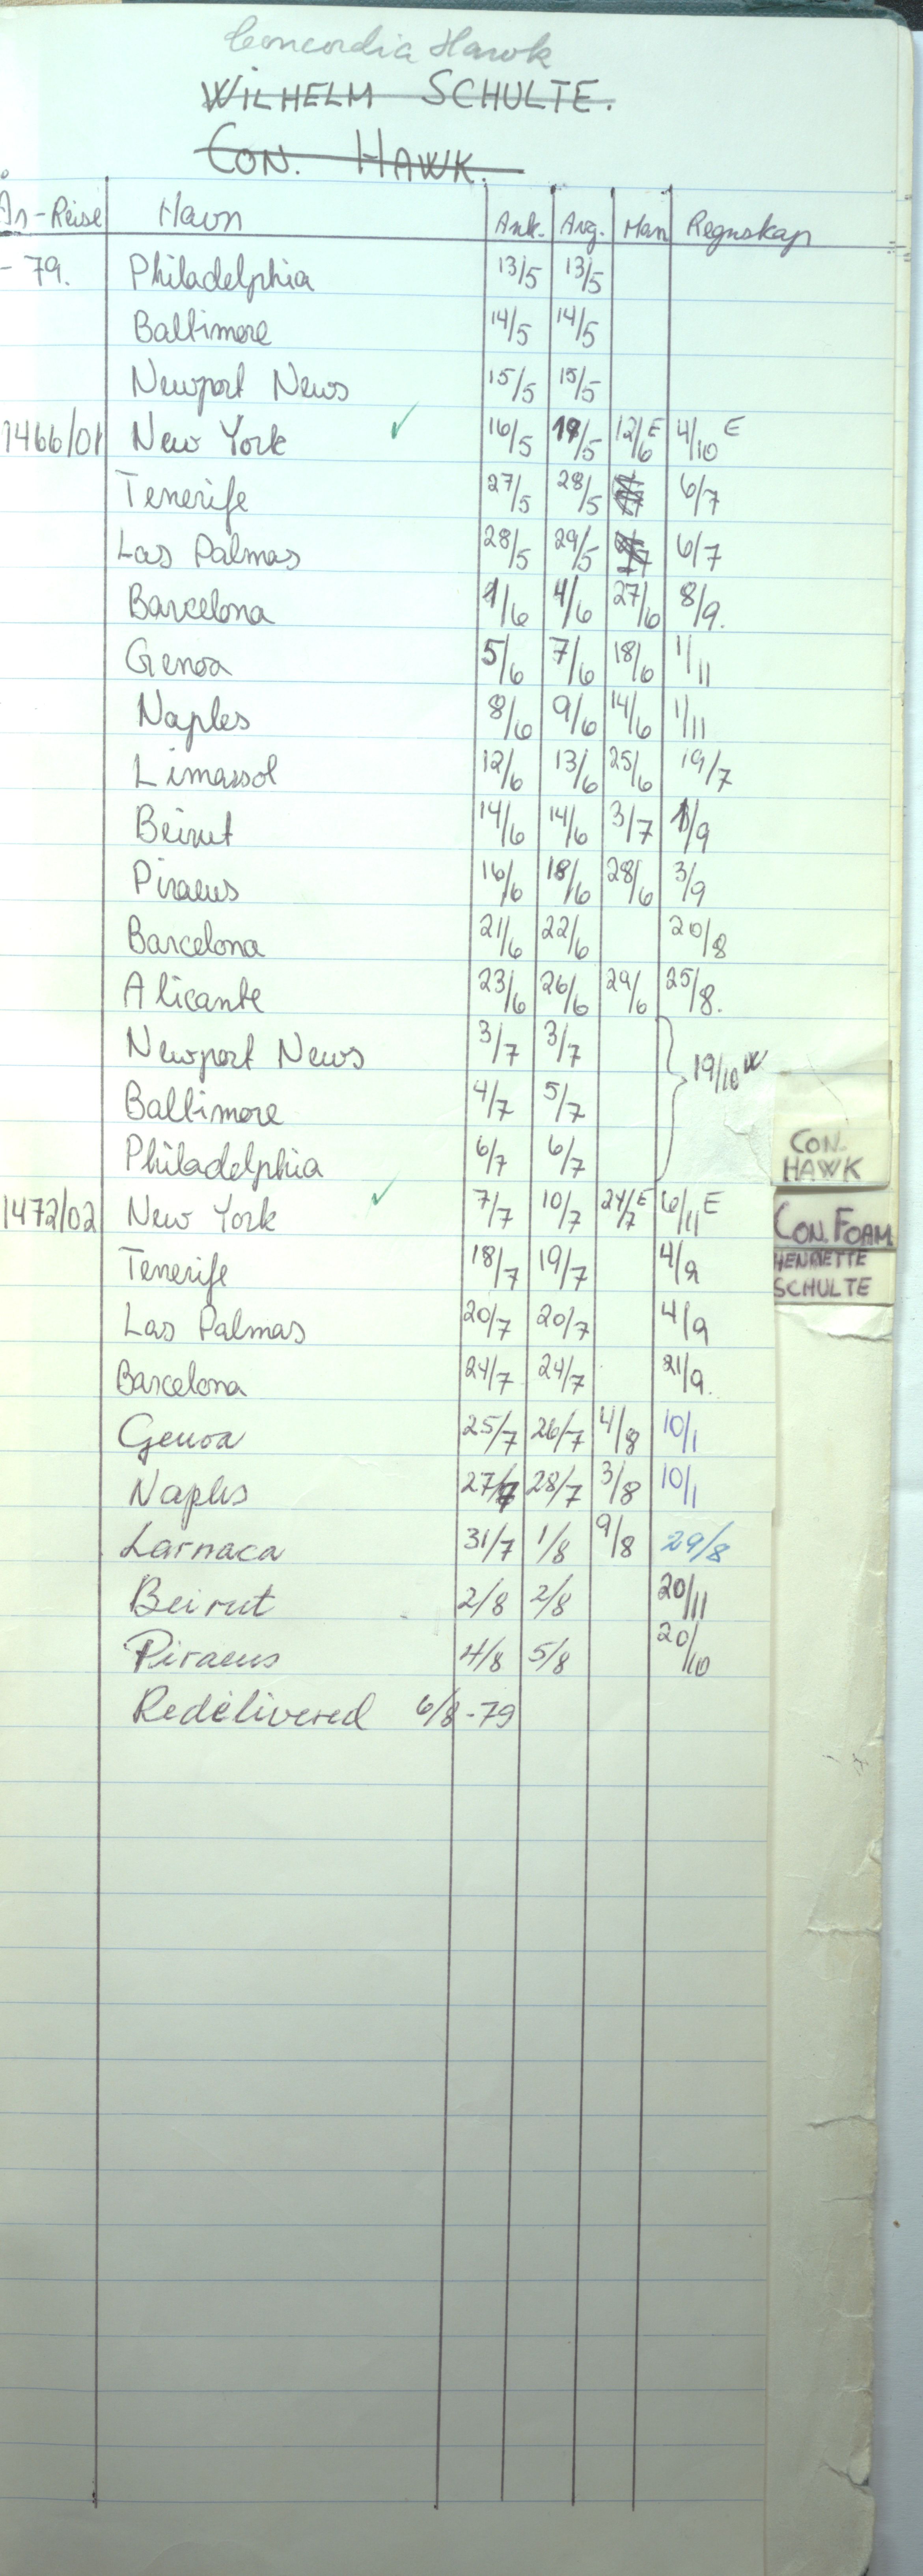 Concordia Hawk
WILHELM SCHULTE.
CON. HAWK.
År-Reise Havn Ank. Avg. Man Regnskap
- 79. Philadelphia 13/5 13/5
Baltimore 14/5 14/5
Newport News 15/5 15/5
1466/01 New York ✓ 16/5 19/5 12/6 E 4/10 E
Tenerife 27/5 28/5 6/7
Las Palmas 28/5 29/5 6/7
Barcelona 1/6 4/6 27/6 8/9.
Genoa 5/6 7/6 18/6 1/11
Naples 8/6 9/6 14/6 1/11
Limassol 12/6 13/6 25/6 19/7
Beirut 14/6 14/6 3/7 1/9
Piraeus 16/6 18/6 28/6 3/9
Barcelona 21/6 22/6 20/8
Alicante 23/6 26/6 29/6 25/8.
Newport News 3/7 3/7
19/10
Baltimore 4/7 5/7
Philadelphia 6/7 6/7
CON.
HAWK
1472/02 New York ✓ 7/7 10/7 24/7 E 6/11 E
CON. FOAM
Tenerife 18/7 19/7 4/9
HENRIETTE
SCHULTE
Las Palmas 20/7 20/7 4/9
Barcelona 24/7 24/7 21/9.
Genoa 25/7 26/7 4/8 10/1
Naples 27/7 28/7 3/8 10/1
Larnaca 31/7 1/8 9/8 29/8
Beirut 2/8 2/8 20/11
Piraeus 4/8 5/8 20/10
Redelivered 6/8-79